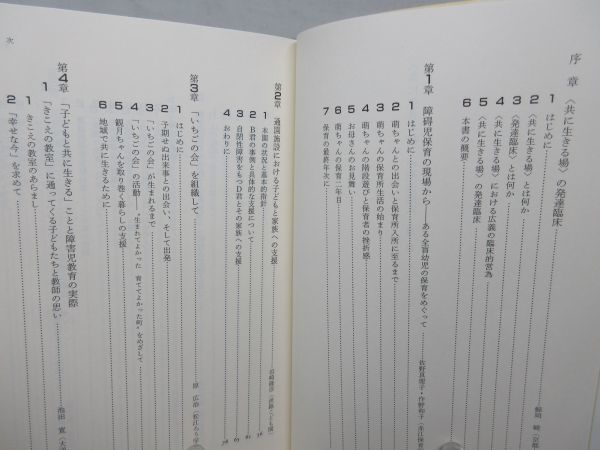 序章 〈共に生きる場〉の発達臨床
鯨岡 峻（京都
1 はじめに
2 〈共に生きる場〉とは何か
3 〈発達臨床〉とは何か
4 〈共に生きる場〉における広義の臨床的営為
5 〈共に生きる場〉の発達臨床
6 本書の概要
第1章 障碍児保育の現場から——ある全盲幼児の保育をめぐって
佐野真理子・作野和子（赤江保育
1 はじめに
2 萌ちゃんとの出会いと保育所入所に至るまで
3 萌ちゃんの保育所生活の始まり
4 萌ちゃんの階段遊びと保育者の挫折感
5 お母さんのお見舞い
6 萌ちゃんの保育二年目
7 保育の最終年次に
次
第2章 通園施設における子どもと家族への支援
1 本園の状況と基本的指針
2 B君の事例と具体的な支援について
3 自閉性障害をもつD君とその家族への支援
4 おわりに
第3章 「いちごの会」を組織して
原 広治（松江ろう学
1 はじめに
2 予期せぬ出来事との出会い、そして出発
3 「いちごの会」が生まれるまで
4 「いちごの会」の活動——「生まれてよかった 育ててよかった町」をめざして
5 観月ちゃんを取り巻く暮らしの支援
6 地域で共に生きるために
第4章 「子どもと共に生きる」ことと障害児教育の実際
池田 寛（大
1 「きこえの教室」に通ってくる子どもたちと教師の思い
1 きこえの教室のあらまし
2 「幸せな今」を求めて